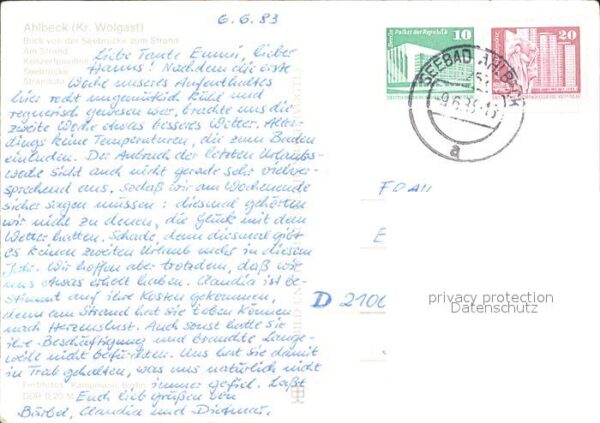 6.6.83
Ahlbeck (Kr. Wolgast)
Blick von der Seebrücke zum Strand
Am Strand
Konzertpavillon
Seebrücke
Strand
Liebe Tante Emmi, lieber
Hanns! Nachdem die erste
Woche unseres Aufenthaltes
hier recht ungemütlich kühl und
regnerisch gewesen war, brachte uns die
zweite Woche etwas besseres Wetter. Aller-
dings keine Temperaturen, die zum Baden
einluden. Der Anbruch der letzten Urlaubs-
woche sieht auch nicht gerade sehr vielver-
sprechend aus, sodaß wir am Wochenende
sicher sagen müssen: diesmal gehörten
wir nicht zu denen, die Glück mit dem
Wetter hatten. Schade, denn diesmal gibt
es keinen zweiten Urlaub mehr in diesem
Jahr. Wir hoffen aber trotzdem, daß wir
uns etwas erholt haben. Claudia ist be-
stimmt auf ihre Kosten gekommen,
denn am Strand hat sie toben können
nach Herzenslust. Auch sonst hatte sie
ihre Beschäftigung und brauchte Lange-
weile nicht befürchten. Uns hat sie damit
in Trab gehalten, was uns natürlich nicht
immer gefiel. Laßt
Euch lieb grüßen von
Bärbel, Claudia und Dietmar.
Berlin, Palast der Republik
10
DDR
20
SEEBAD AHLBECK
-9.6.83-13
a
F
E
D 2100
privacy protection
Datenschutz
DDR 0,20 M